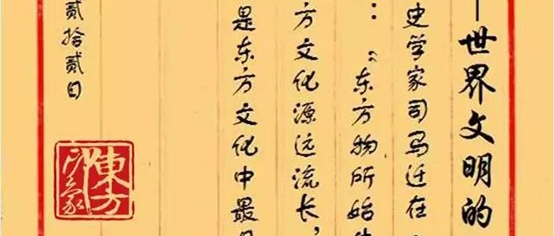 世界文明的
史学家司马迁在
：“东方物所始生
方文化源远流长，
是东方文化中最
贰拾贰日
東方印象